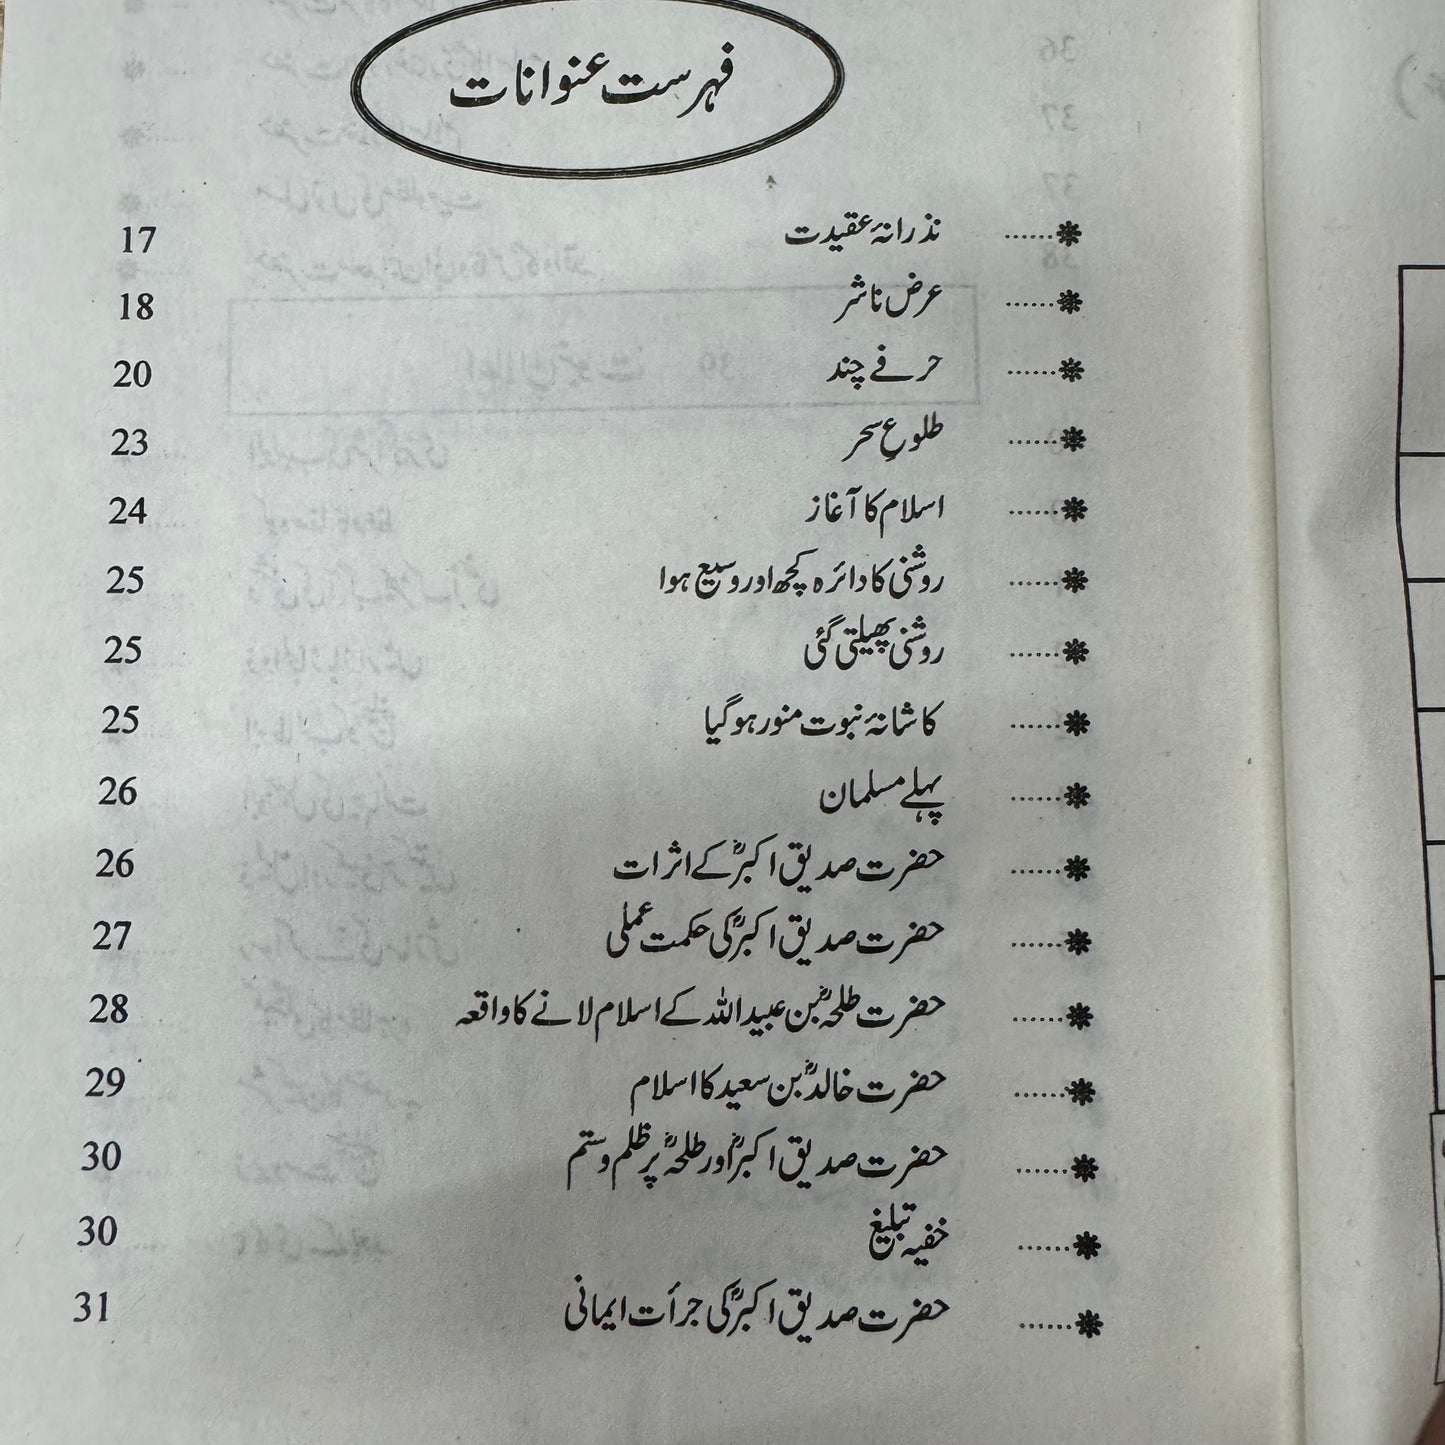 فہرست عنوانات
❋...... نذرانۂ عقیدت 17
❋...... عرض ناشر 18
❋...... حرفے چند 20
❋...... طلوعِ سحر 23
❋...... اسلام کا آغاز 24
❋...... روشنی کا دائرہ کچھ اور وسیع ہوا 25
❋...... روشنی پھیلتی گئی 25
❋...... کاشانۂ نبوت منور ہوگیا 25
❋...... پہلے مسلمان 26
❋...... حضرت صدیق اکبرؓ کے اثرات 26
❋...... حضرت صدیق اکبرؓ کی حکمت عملی 27
❋...... حضرت طلحہؓ بن عبید اللہ کے اسلام لانے کا واقعہ 28
❋...... حضرت خالدؓ بن سعید کا اسلام 29
❋...... حضرت صدیق اکبرؓ اور طلحہؓ پر ظلم و ستم 30
❋...... خفیہ تبلیغ 30
❋...... حضرت صدیق اکبرؓ کی جرأت ایمانی 31